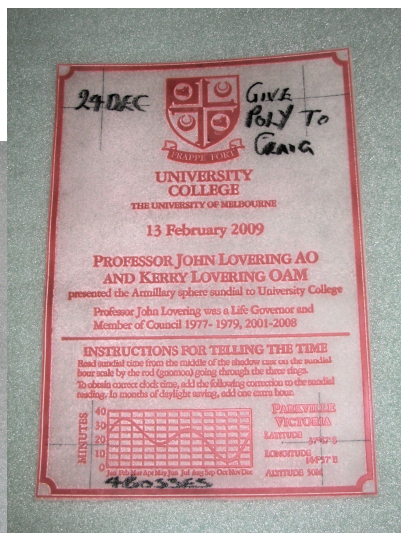 24 DEC
GIVE
POLY TO
CRAIG
FRAPPE FORT
UNIVERSITY
COLLEGE
THE UNIVERSITY OF MELBOURNE
13 February 2009
PROFESSOR JOHN LOVERING AO
AND KERRY LOVERING OAM
presented the Armillary sphere sundial to University College
Professor John Lovering was a Life Governor and
Member of Council 1977- 1979, 2001-2008
INSTRUCTIONS FOR TELLING THE TIME
Read sundial time from the middle of the shadow cast on the sundial
hour scale by the rod (gnomon) going through the three rings.
To obtain correct clock time, add the following correction to the sundial
reading. In months of daylight saving, add one extra hour.
MINUTES
40
30
20
10
0
Jan Feb Mar Apr May Jun Jul Aug Sep Oct Nov Dec
PARKVILLE
VICTORIA
LATITUDE
37°47'S
LONGITUDE
144°57'E
ALTITUDE 50M
4 BOSSES